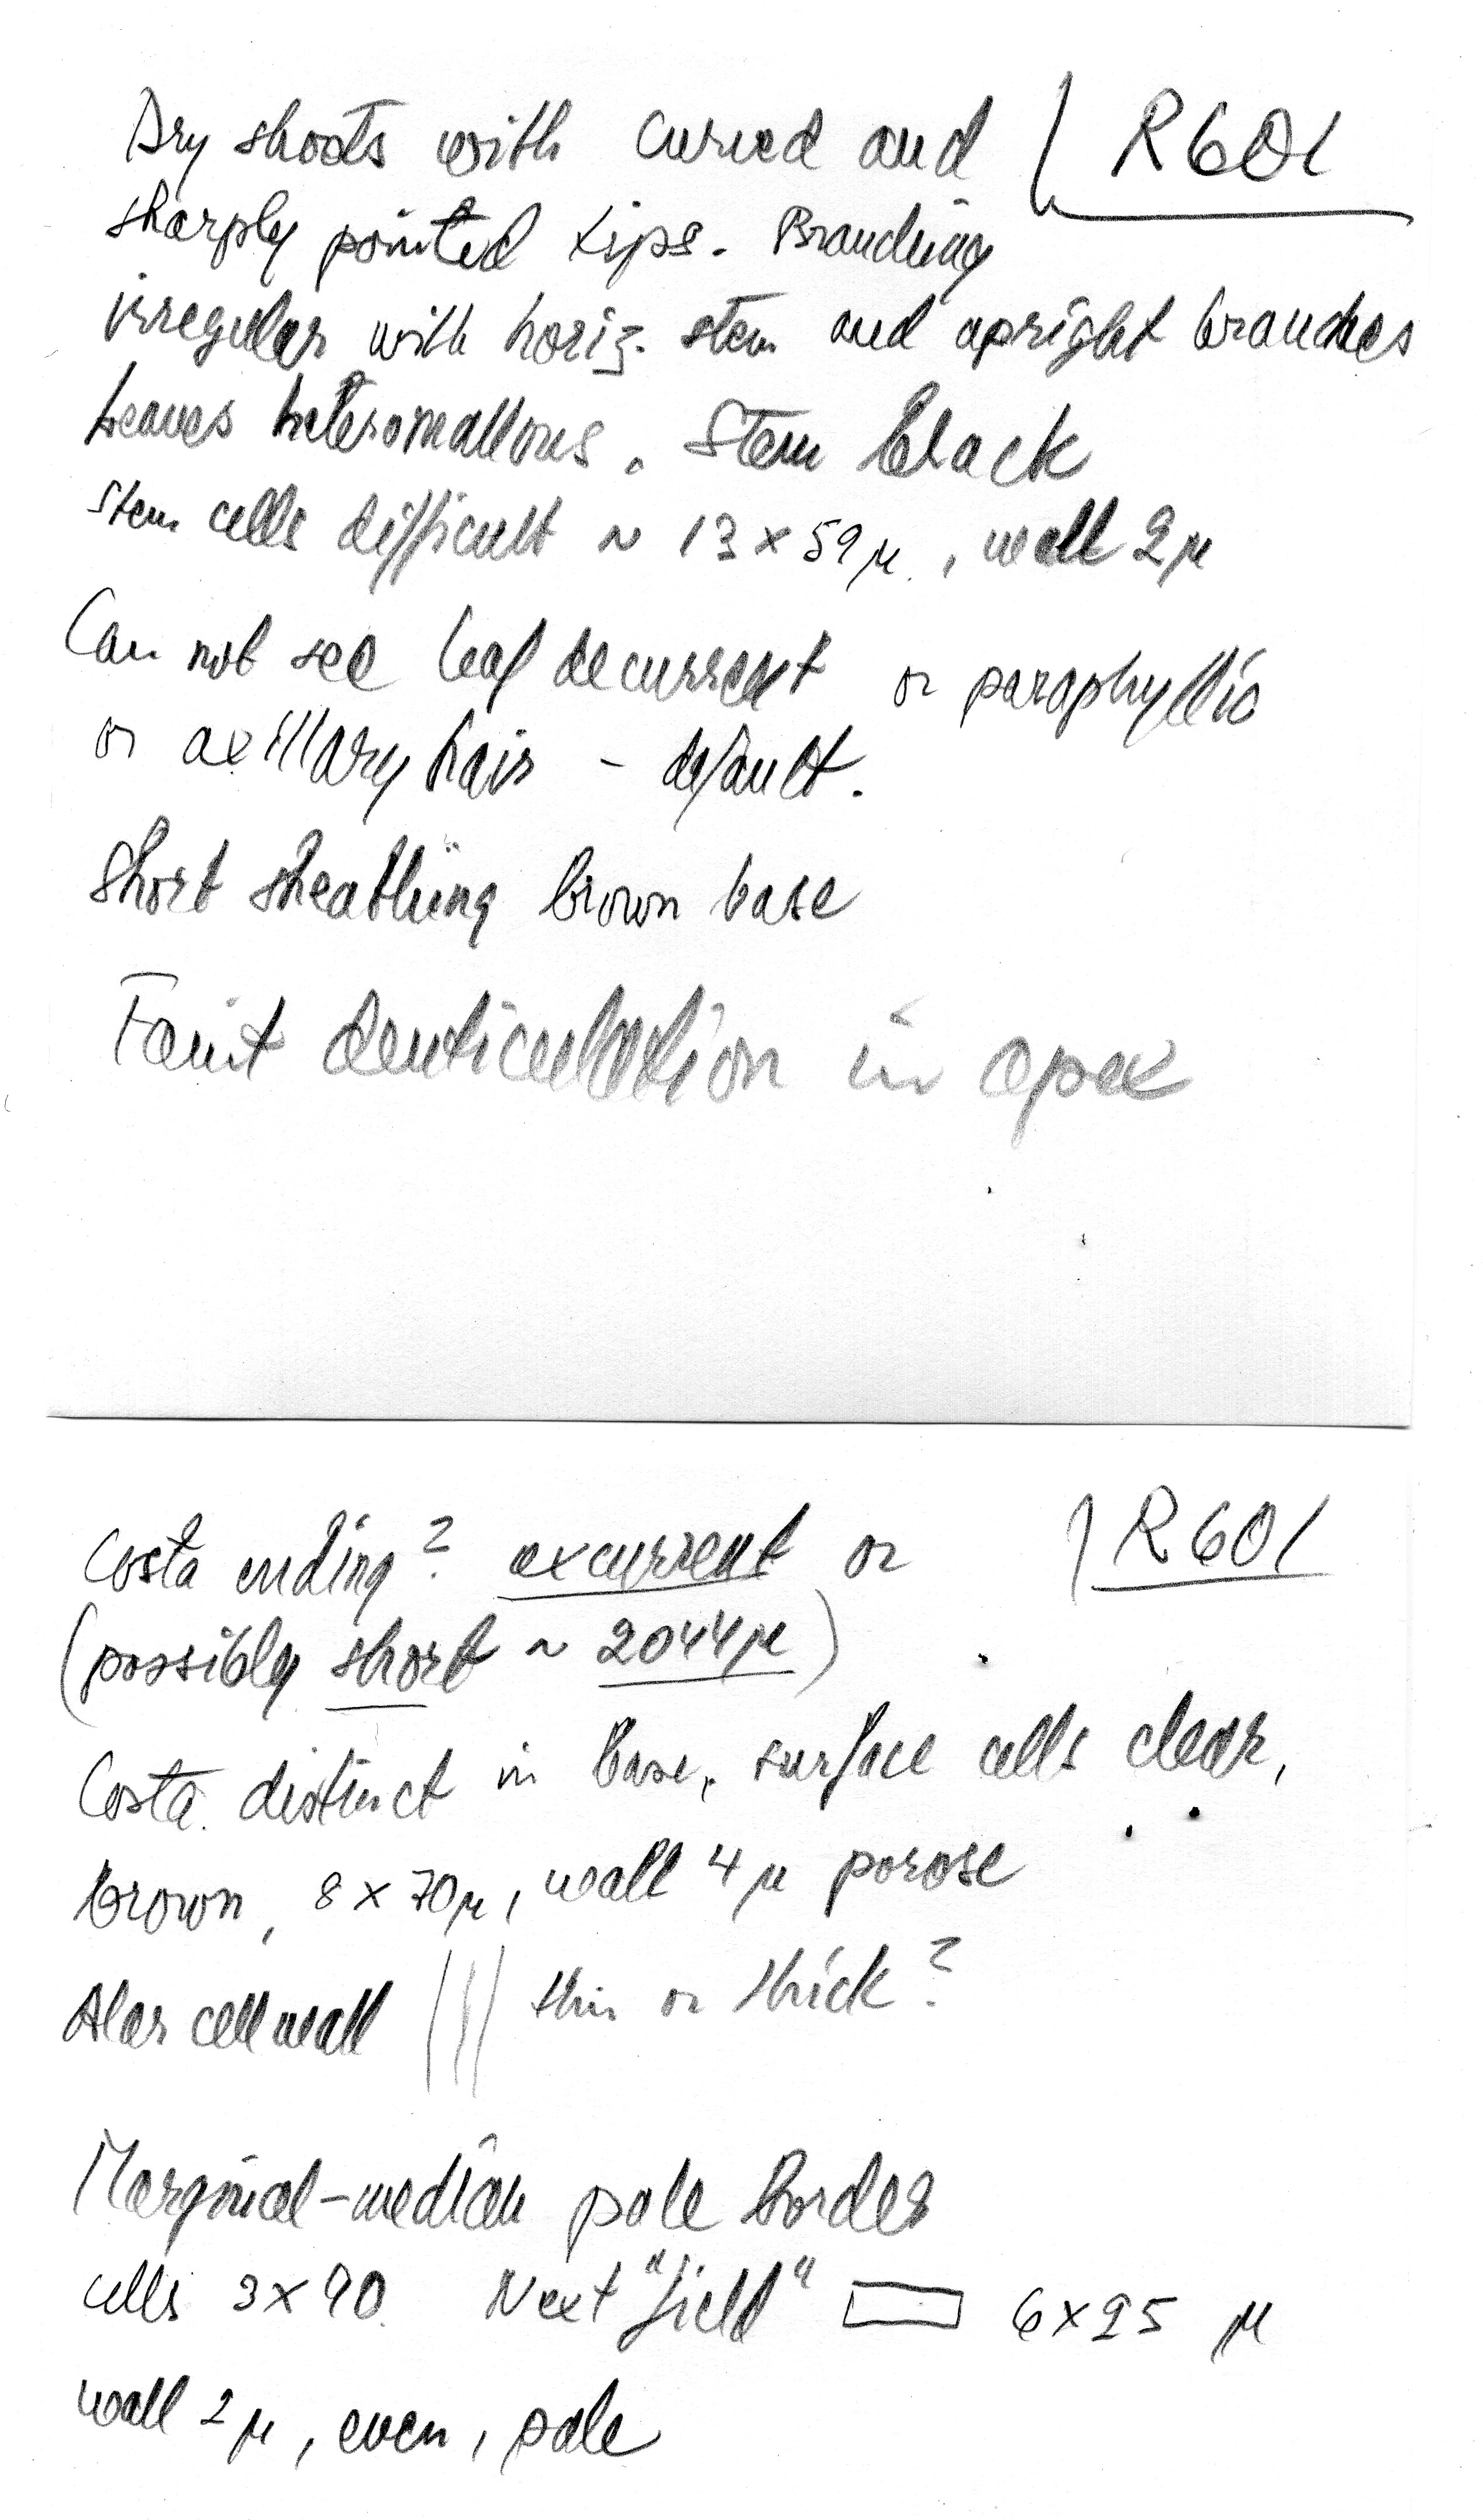 Dry shoots with curved and R601
sharply pointed tips. Branching
irregular with horiz. stem and upright branches
Leaves heteromallous. Stem black
Stem cells difficult ~ 13 x 59 μ, wall 2 μ
Can not see leaf decurrent or paraphyllia
or axillary hair - default.
Short sheathing brown base
Faint denticulation in apex
Costa ending? excurrent or R601
(possibly short ~ 2044 μ)
Costa distinct in base, surface cells clear,
brown, 8 x 70 μ, wall 4 μ porose
Alar cell wall thin or thick?
Marginal-median pale border
cells 3 x 90. Next "field" 6 x 25 μ
wall 2 μ, even, pale